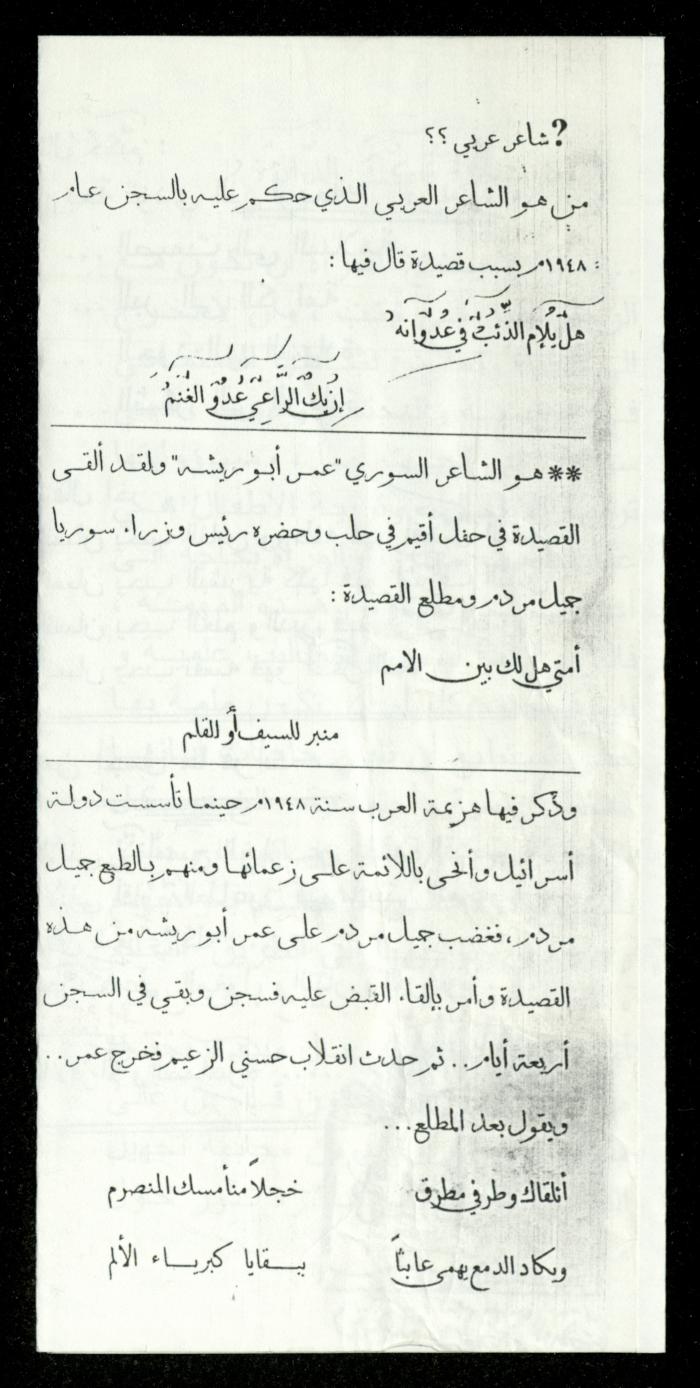 ? شاعر عربي ؟؟
من هو الشاعر العربي الذي حكم عليه بالسجن عام
١٩٤٨م بسبب قصيدة قال فيها :
هَلْ يُلامُ الذِّئْبُ في عُدْوَانِهِ
إنْ يَكُ الرَّاعِي عَدُوَّ الغَنَمِ
** هو الشاعر السوري "عمر أبو ريشه" ولقد ألقى
القصيدة في حفل أقيم في حلب وحضره رئيس وزراء سوريا
جميل مردم ومطلع القصيدة :
أمتي هل لك بين الامم
منبر للسيف أو للقلم
وذكر فيها هزيمة العرب سنة ١٩٤٨م حينما تأسست دولة
أسرائيل وأنحى باللائمة على زعمائها ومنهم بالطبع جميل
مردم، فغضب جميل مردم على عمر أبو ريشه من هذه
القصيدة وأمر بإلقاء القبض عليه فسجن وبقي في السجن
أربعة أيام.. ثم حدث انقلاب حسني الزعيم فخرج عمر..
ويقول بعد المطلع...
أتلقاك وطرفي مطرق خجلاً من أمسك المنصرم
ويكاد الدمع يهمى عابثاً ببقايا كبرياء الألم